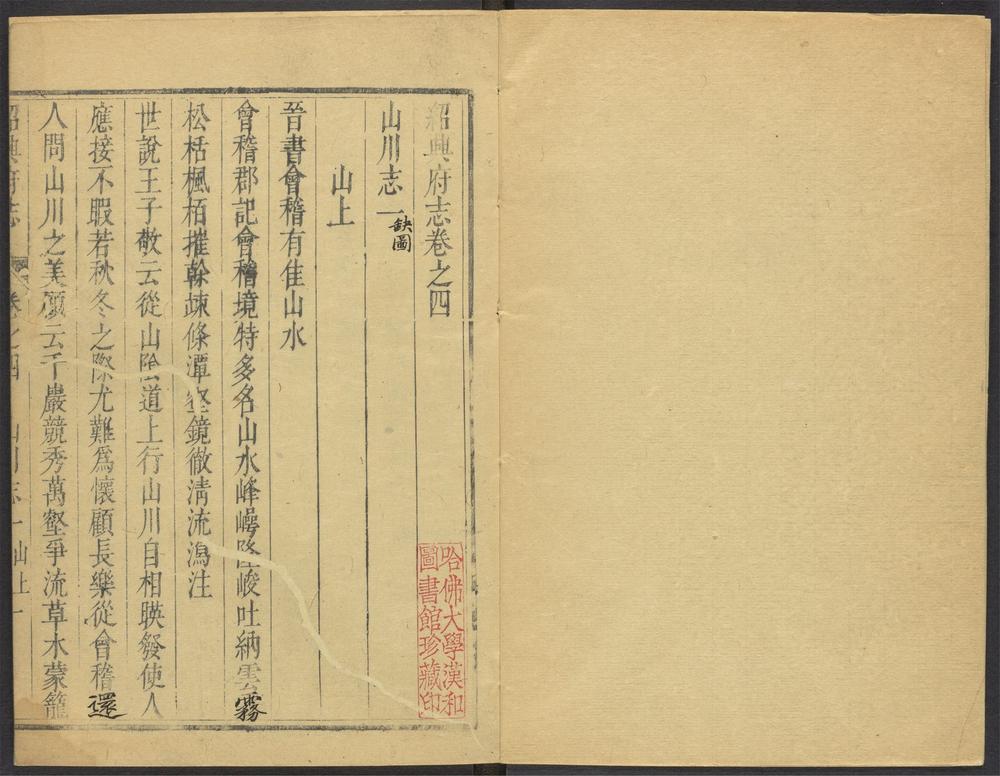 紹興府志卷之四
山川志一缺圖
山上
晉書會稽有佳山水
會稽郡記會稽境特多名山水峰崿隆峻吐納雲霧
松栝楓栢擢榦竦條潭壑鏡徹淸流瀉注
世說王子敬云從山陰道上行山川自相暎發使人
應接不暇若秋冬之際尤難爲懷顧長樂從會稽還
人問山川之美顧云千巖競秀萬壑爭流草木蒙籠
紹興府志 卷之四 山川志一 山上 一
哈佛大學漢和
圖書館珍藏印